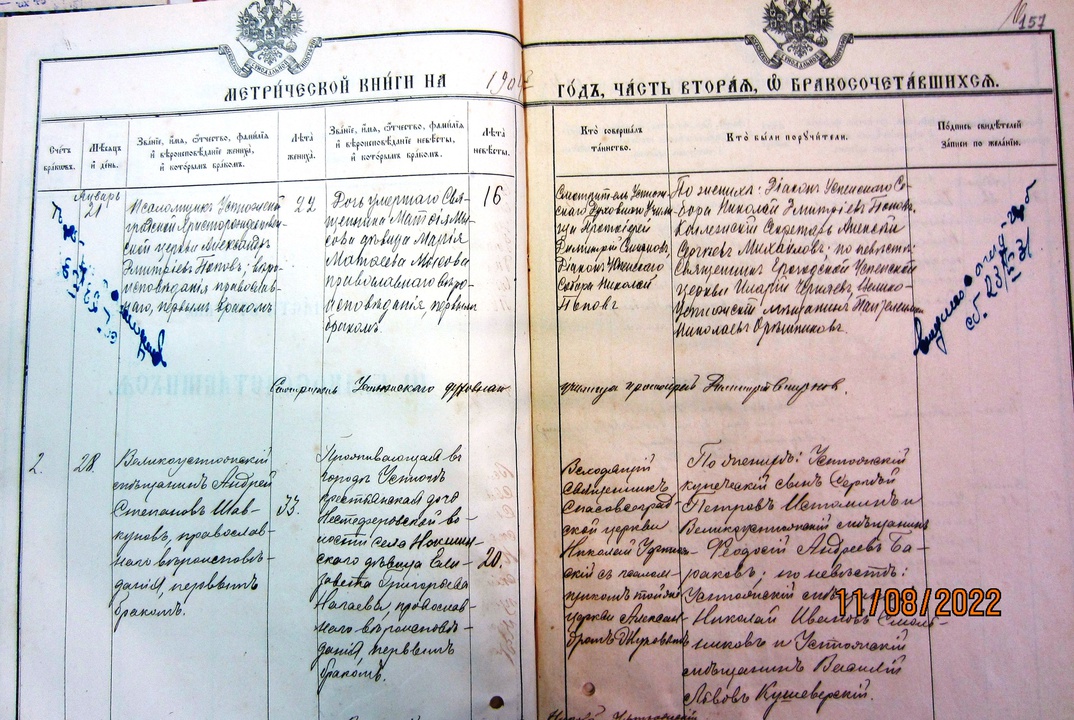 157
МЕТРИЧЕСКОЙ КНИГИ НА 1904 ГОДЪ, ЧАСТЬ ВТОРАЯ, Ѡ БРАКОСОЧЕТАВШИХСЯ.
Счетъ браковъ.
Мѣсяцъ и день.
Званіе, имя, отчество, фамилія
и вѣроисповѣданіе жениха,
и которымъ бракомъ.
Лѣта
жениха.
Званіе, имя, отчество, фамилія
и вѣроисповѣданіе невѣсты,
и которымъ бракомъ.
Лѣта
невѣсты.
Кто совершалъ
таинство.
Кто были поручители.
Подпись свидѣтелей
записи по желанію.
Январь
21
Псаломщикъ Устюжской
градской Христорождествен-
ской церкви Александръ
Дмитріевъ Поповъ; вѣро-
исповѣданія православ-
наго, первымъ бракомъ
22
Дочь умершаго Свя-
щенника Матѳія Мы-
сова дѣвица Марія
Матѳеева Мысова
православнаго вѣро-
исповѣданія, первымъ
бракомъ.
16
Смотритель Устюж-
скаго Духовнаго Учили-
ща Протоіерей
Димитрій Смирновъ,
Діаконъ Успенскаго
Собора Николай
Поповъ
По женихѣ: Діаконъ Успенскаго Со-
бора Николай Дмитріевъ Поповъ,
Коллежскій Секретарь Алексѣй
Сергѣевъ Михайловъ; по невѣстѣ:
Священникъ Ерогодской Успенской
церкви Иларій Черняевъ, Велико-
Устюжскій мѣщанинъ
Николаевъ Орѣшниковъ.
Смотритель Устюжскаго духовнаго училища протоіерей Димитрій Смирновъ.
2.
28
Великоустюжскій
мѣщанинъ Андрей
Степановъ Шав-
куновъ, православ-
наго вѣроисповѣ-
данія, первымъ
бракомъ.
33.
Проживающая въ
городѣ Устюгѣ
крестьянская дочь
Нестеферовской во-
лости села
скаго дѣвица Ели-
завета Григорьева
Нагаева, православ-
наго вѣроисповѣ-
данія, первымъ
бракомъ.
20.
священникъ
Спасовсеград-
ской церкви
Николай
скій съ псалом-
щикомъ той же
церкви Алексан-
дромъ Жуковымъ
По женихѣ: Устюжскій
купеческій сынъ Сергѣй
Петровъ Истоминъ и
Великоустюжскій мѣщанинъ
Ѳеодосій Андреевъ Ба-
раковъ; по невѣстѣ:
Устюжскій мѣщанинъ
Николай Ивановъ Смоль-
никовъ и Устюжскій
мѣщанинъ Василій
Львовъ Кушеверскій.
11/08/2022